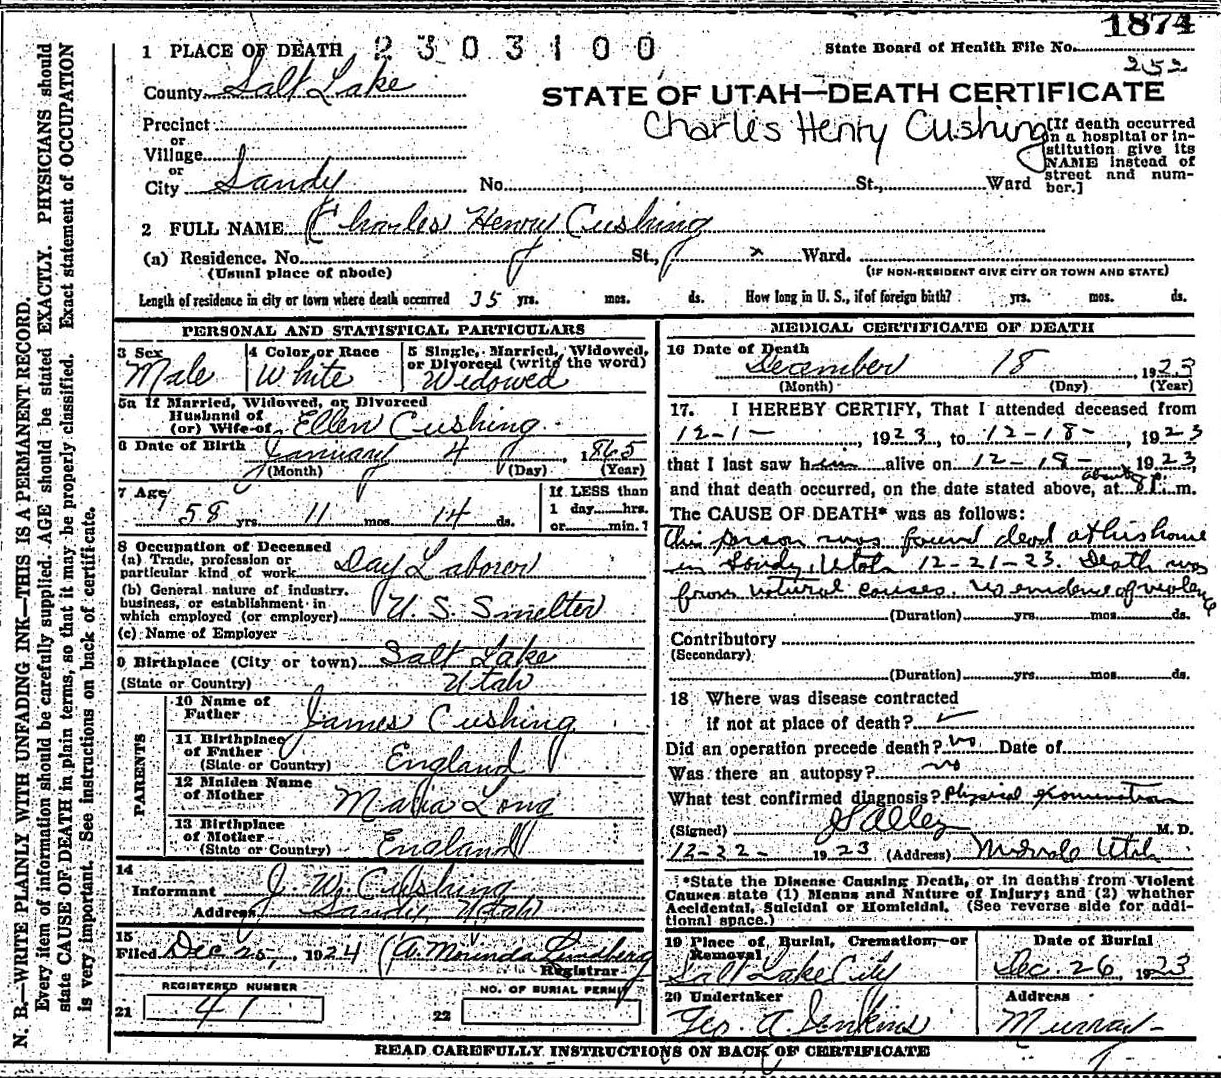 1874
1 PLACE OF DEATH 2303100 State Board of Health File No.
252
County Salt Lake
STATE OF UTAH—DEATH CERTIFICATE
Charles Henry Cushing
Precinct
or
Village
or
City Sandy No. St., Ward
[If death occurred
in a hospital or in-
stitution give its
NAME instead of
street and num-
ber.]
2 FULL NAME Charles Henry Cushing
(a) Residence. No. St., x Ward.
(Usual place of abode) (IF NON-RESIDENT GIVE CITY OR TOWN AND STATE)
Length of residence in city or town where death occurred 35 yrs. mos. ds. How long in U. S., if of foreign birth? yrs. mos. ds.
PERSONAL AND STATISTICAL PARTICULARS
3 Sex
Male
4 Color or Race
White
5 Single, Married, Widowed,
or Divorced (write the word)
Widowed
5a If Married, Widowed, or Divorced
Husband of
(or) Wife of Ellen Cushing
6 Date of Birth January 4, 1865
(Month) (Day) (Year)
7 Age
58 yrs. 11 mos. 14 ds.
If LESS than
1 day hrs.
or min.?
8 Occupation of Deceased
(a) Trade, profession or
particular kind of work Day Laborer
(b) General nature of industry,
business, or establishment in
which employed (or employer) U. S. Smelter
(c) Name of Employer
9 Birthplace (City or town) Salt Lake
(State or Country) Utah
PARENTS
10 Name of
Father James Cushing
11 Birthplace
of Father
(State or Country) England
12 Maiden Name
of Mother Maria Long
13 Birthplace
of Mother
(State or Country) England
14
Informant J. W. Cushing
Address Sandy, Utah
15
Filed Dec 25, 1924 A. Morinda Lundberg
Registrar
REGISTERED NUMBER
21 41
NO. OF BURIAL PERMIT
22
MEDICAL CERTIFICATE OF DEATH
16 Date of Death
December 18 1923
(Month) (Day) (Year)
17. I HEREBY CERTIFY, That I attended deceased from
12-1-, 1923, to 12-18-, 1923
that I last saw him alive on 12-18-, 1923,
and that death occurred, on the date stated above, at about 8 P. m.
The CAUSE OF DEATH* was as follows:
This person was found dead at his home
in Sandy, Utah 12-21-23. Death was
from natural causes no evidence of violence
(Duration) yrs. mos. ds.
Contributory
(Secondary)
(Duration) yrs. mos. ds.
18 Where was disease contracted
if not at place of death?
Did an operation precede death? no Date of
Was there an autopsy? no
What test confirmed diagnosis? Physical Examination
(Signed) M. D.
12-22-, 1923 (Address) Midvale Utah
*State the Disease Causing Death, or in deaths from Violent
Causes state (1) Means and Nature of Injury; and (2) whether
Accidental, Suicidal or Homicidal. (See reverse side for addi-
tional space.)
19 Place of Burial, Cremation, or
Removal
Salt Lake City
Date of Burial
Dec 26, 1923
20 Undertaker
Geo. A Jenkins
Address
Murray
READ CAREFULLY INSTRUCTIONS ON BACK OF CERTIFICATE
N. B.—WRITE PLAINLY WITH UNFADING INK—THIS IS A PERMANENT RECORD.
Every item of information should be carefully supplied. AGE should be stated EXACTLY. PHYSICIANS should
state CAUSE OF DEATH in plain terms, so that it may be properly classified. Exact statement of OCCUPATION
is very important. See instructions on back of certificate.